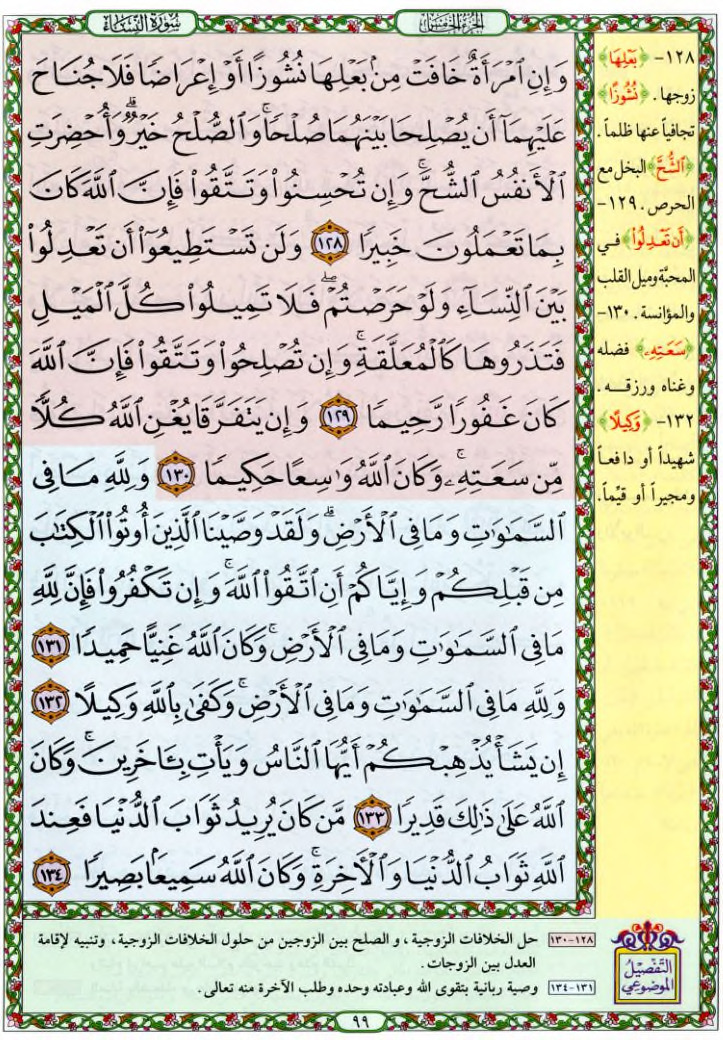 سُورَةُ النِّسَاءِ
الجزء الخامس
وَإِنِ ٱمۡرَأَةٌ خَافَتۡ مِنۢ بَعۡلِهَا نُشُوزًا أَوۡ إِعۡرَاضٗا فَلَا جُنَاحَ
عَلَيۡهِمَآ أَن يُصۡلِحَا بَيۡنَهُمَا صُلۡحٗاۚ وَٱلصُّلۡحُ خَيۡرٞۗ وَأُحۡضِرَتِ
ٱلۡأَنفُسُ ٱلشُّحَّۚ وَإِن تُحۡسِنُواْ وَتَتَّقُواْ فَإِنَّ ٱللَّهَ كَانَ
بِمَا تَعۡمَلُونَ خَبِيرٗا ١٢٨ وَلَن تَسۡتَطِيعُوٓاْ أَن تَعۡدِلُواْ
بَيۡنَ ٱلنِّسَآءِ وَلَوۡ حَرَصۡتُمۡۖ فَلَا تَمِيلُواْ كُلَّ ٱلۡمَيۡلِ
فَتَذَرُوهَا كَٱلۡمُعَلَّقَةِۚ وَإِن تُصۡلِحُواْ وَتَتَّقُواْ فَإِنَّ ٱللَّهَ
كَانَ غَفُورٗا رَّحِيمٗا ١٢٩ وَإِن يَتَفَرَّقَا يُغۡنِ ٱللَّهُ كُلّٗا
مِّن سَعَتِهِۦۚ وَكَانَ ٱللَّهُ وَٰسِعًا حَكِيمٗا ١٣٠ وَلِلَّهِ مَا فِي
ٱلسَّمَٰوَٰتِ وَمَا فِي ٱلۡأَرۡضِۗ وَلَقَدۡ وَصَّيۡنَا ٱلَّذِينَ أُوتُواْ ٱلۡكِتَٰبَ
مِن قَبۡلِكُمۡ وَإِيَّاكُمۡ أَنِ ٱتَّقُواْ ٱللَّهَۚ وَإِن تَكۡفُرُواْ فَإِنَّ لِلَّهِ
مَا فِي ٱلسَّمَٰوَٰتِ وَمَا فِي ٱلۡأَرۡضِۚ وَكَانَ ٱللَّهُ غَنِيًّا حَمِيدٗا ١٣١
وَلِلَّهِ مَا فِي ٱلسَّمَٰوَٰتِ وَمَا فِي ٱلۡأَرۡضِۚ وَكَفَىٰ بِٱللَّهِ وَكِيلًا ١٣٢
إِن يَشَأۡ يُذۡهِبۡكُمۡ أَيُّهَا ٱلنَّاسُ وَيَأۡتِ بِـَٔاخَرِينَۚ وَكَانَ
ٱللَّهُ عَلَىٰ ذَٰلِكَ قَدِيرٗا ١٣٣ مَّن كَانَ يُرِيدُ ثَوَابَ ٱلدُّنۡيَا فَعِندَ
ٱللَّهِ ثَوَابُ ٱلدُّنۡيَا وَٱلۡأٓخِرَةِۚ وَكَانَ ٱللَّهُ سَمِيعَۢا بَصِيرٗا ١٣٤
١٢٨- ﴿بَعْلِهَا﴾
زوجها. ﴿نُشُوزًا﴾
تجافياً عنها ظلماً.
﴿ٱلشُّحَّ﴾ البخل مع
الحرص. ١٢٩-
﴿أَن تَعْدِلُواْ﴾ في
المحبّة وميل القلب
والمؤانسة. ١٣٠-
﴿سَعَتِهِۦ﴾ فضله
وغناه ورزقه.
١٣٢- ﴿وَكِيلًا﴾
شهيداً أو دافعاً
ومجيراً أو قيّماً.
التفصيل
الموضوعي
١٢٨-١٣٠ حل الخلافات الزوجية، و الصلح بين الزوجين من حلول الخلافات الزوجية، وتنبيه لإقامة
العدل بين الزوجات.
١٣١-١٣٤ وصية ربانية بتقوى الله وعبادته وحده وطلب الآخرة منه تعالى.
٩٩